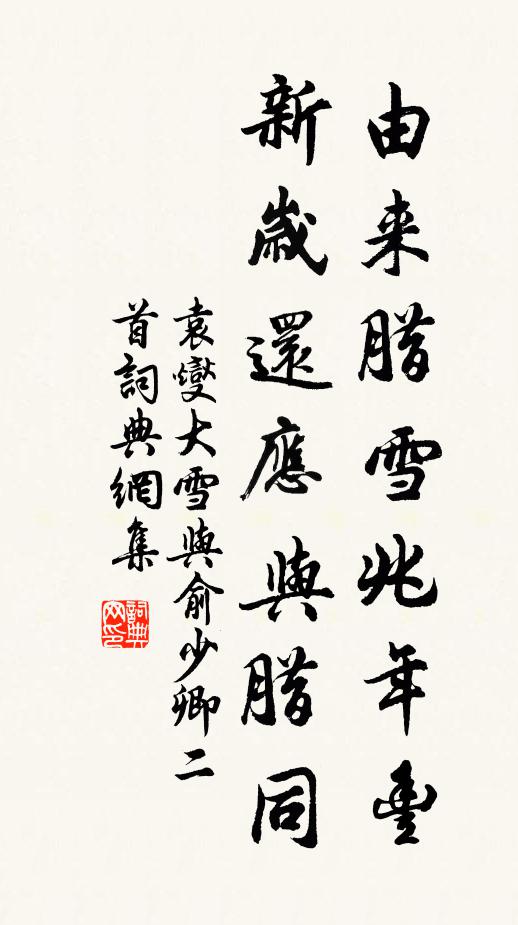 由来腊雪兆年豐
新歲還應與腊同
袁燮大雪與俞少卿二
首詞典網集
詞典网印